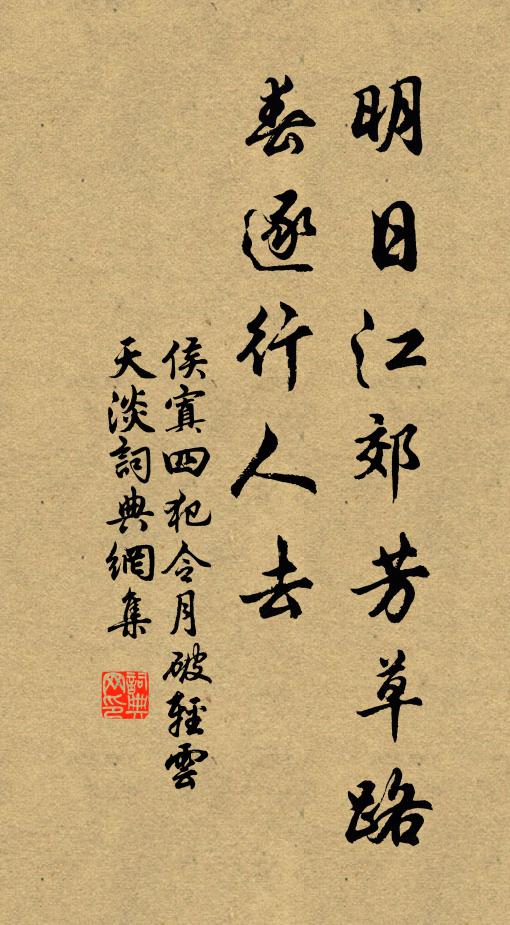 明日江郊芳草路
春逐行人去
侯寘四犯令月破輕雲
天淡詞典網集
詞典網印